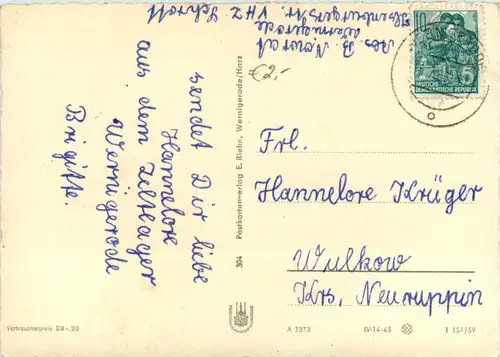 Abs. B. Nawrat
Wernigerode
VHZ Schrott
€2,-
sendet Dir liebe
Hannelore
aus dem Zeltlager
Wernigerode
Brigitte.
304 Postkartenverlag E. Riehn, Wernigerode/Harz
10
5
DEUTSCHE
DEMOKRATISCHE REPUBLIK
Frl.
Hannelore Krüger
Wulkow
Krs. Neuruppin
Verbraucherpreis DM -,20
A 7373
IV-14-45
T 151/59